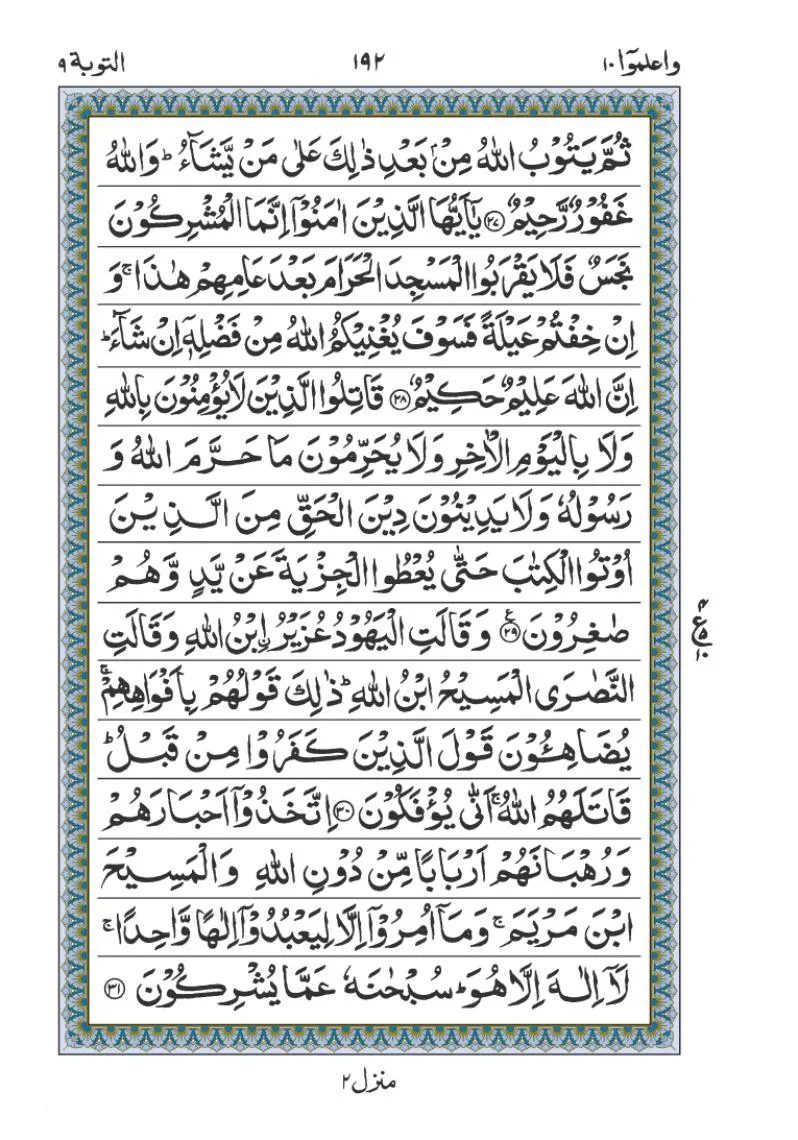 واعلموٓا ١٠ ١٩٢ التوبة ٩
ثُمَّ يَتُوۡبُ اللّٰهُ مِنۡۢ بَعۡدِ ذٰلِكَ عَلٰى مَنۡ يَّشَآءُ ؕ وَاللّٰهُ
غَفُوۡرٌ رَّحِيۡمٌ ﴿۲۷﴾ يٰۤاَيُّهَا الَّذِيۡنَ اٰمَنُوۡۤا اِنَّمَا الۡمُشۡرِكُوۡنَ
نَجَسٌ فَلَا يَقۡرَبُوا الۡمَسۡجِدَ الۡحَـرَامَ بَعۡدَ عَامِهِمۡ هٰذَا ۚ وَ
اِنۡ خِفۡتُمۡ عَيۡلَةً فَسَوۡفَ يُغۡنِيۡكُمُ اللّٰهُ مِنۡ فَضۡلِهٖۤ اِنۡ شَآءَ ؕ
اِنَّ اللّٰهَ عَلِيۡمٌ حَكِيۡمٌ ﴿۲۸﴾ قَاتِلُوا الَّذِيۡنَ لَا يُؤۡمِنُوۡنَ بِاللّٰهِ
وَلَا بِالۡيَوۡمِ الۡاٰخِرِ وَلَا يُحَرِّمُوۡنَ مَا حَرَّمَ اللّٰهُ وَ
رَسُوۡلُهٗ وَلَا يَدِيۡنُوۡنَ دِيۡنَ الۡحَـقِّ مِنَ الَّذِيۡنَ
اُوۡتُوا الۡـكِتٰبَ حَتّٰى يُعۡطُوا الۡجِزۡيَةَ عَنۡ يَّدٍ وَّهُمۡ
صٰغِرُوۡنَ ﴿۲۹﴾ ع وَقَالَتِ الۡيَهُوۡدُ عُزَيۡرُ ۨابۡنُ اللّٰهِ وَقَالَتِ
٤ ع ٥ ١٠
النَّصٰرَى الۡمَسِيۡحُ ابۡنُ اللّٰهِ ؕ ذٰلِكَ قَوۡلُهُمۡ بِاَفۡوَاهِهِمۡ ۚ
يُضَاهِئُوۡنَ قَوۡلَ الَّذِيۡنَ كَفَرُوۡا مِنۡ قَبۡلُ ؕ
قَاتَلَهُمُ اللّٰهُ ۚ اَنّٰى يُؤۡفَكُوۡنَ ﴿۳۰﴾ اِتَّخَذُوۡۤا اَحۡبَارَهُمۡ
وَرُهۡبَانَهُمۡ اَرۡبَابًا مِّنۡ دُوۡنِ اللّٰهِ وَالۡمَسِيۡحَ
ابۡنَ مَرۡيَمَ ۚ وَمَاۤ اُمِرُوۡۤا اِلَّا لِيَعۡبُدُوۡۤا اِلٰهًا وَّاحِدًا ۚ
لَاۤ اِلٰهَ اِلَّا هُوَ ؕ سُبۡحٰنَهٗ عَمَّا يُشۡرِكُوۡنَ ﴿۳۱﴾
منزل ٢